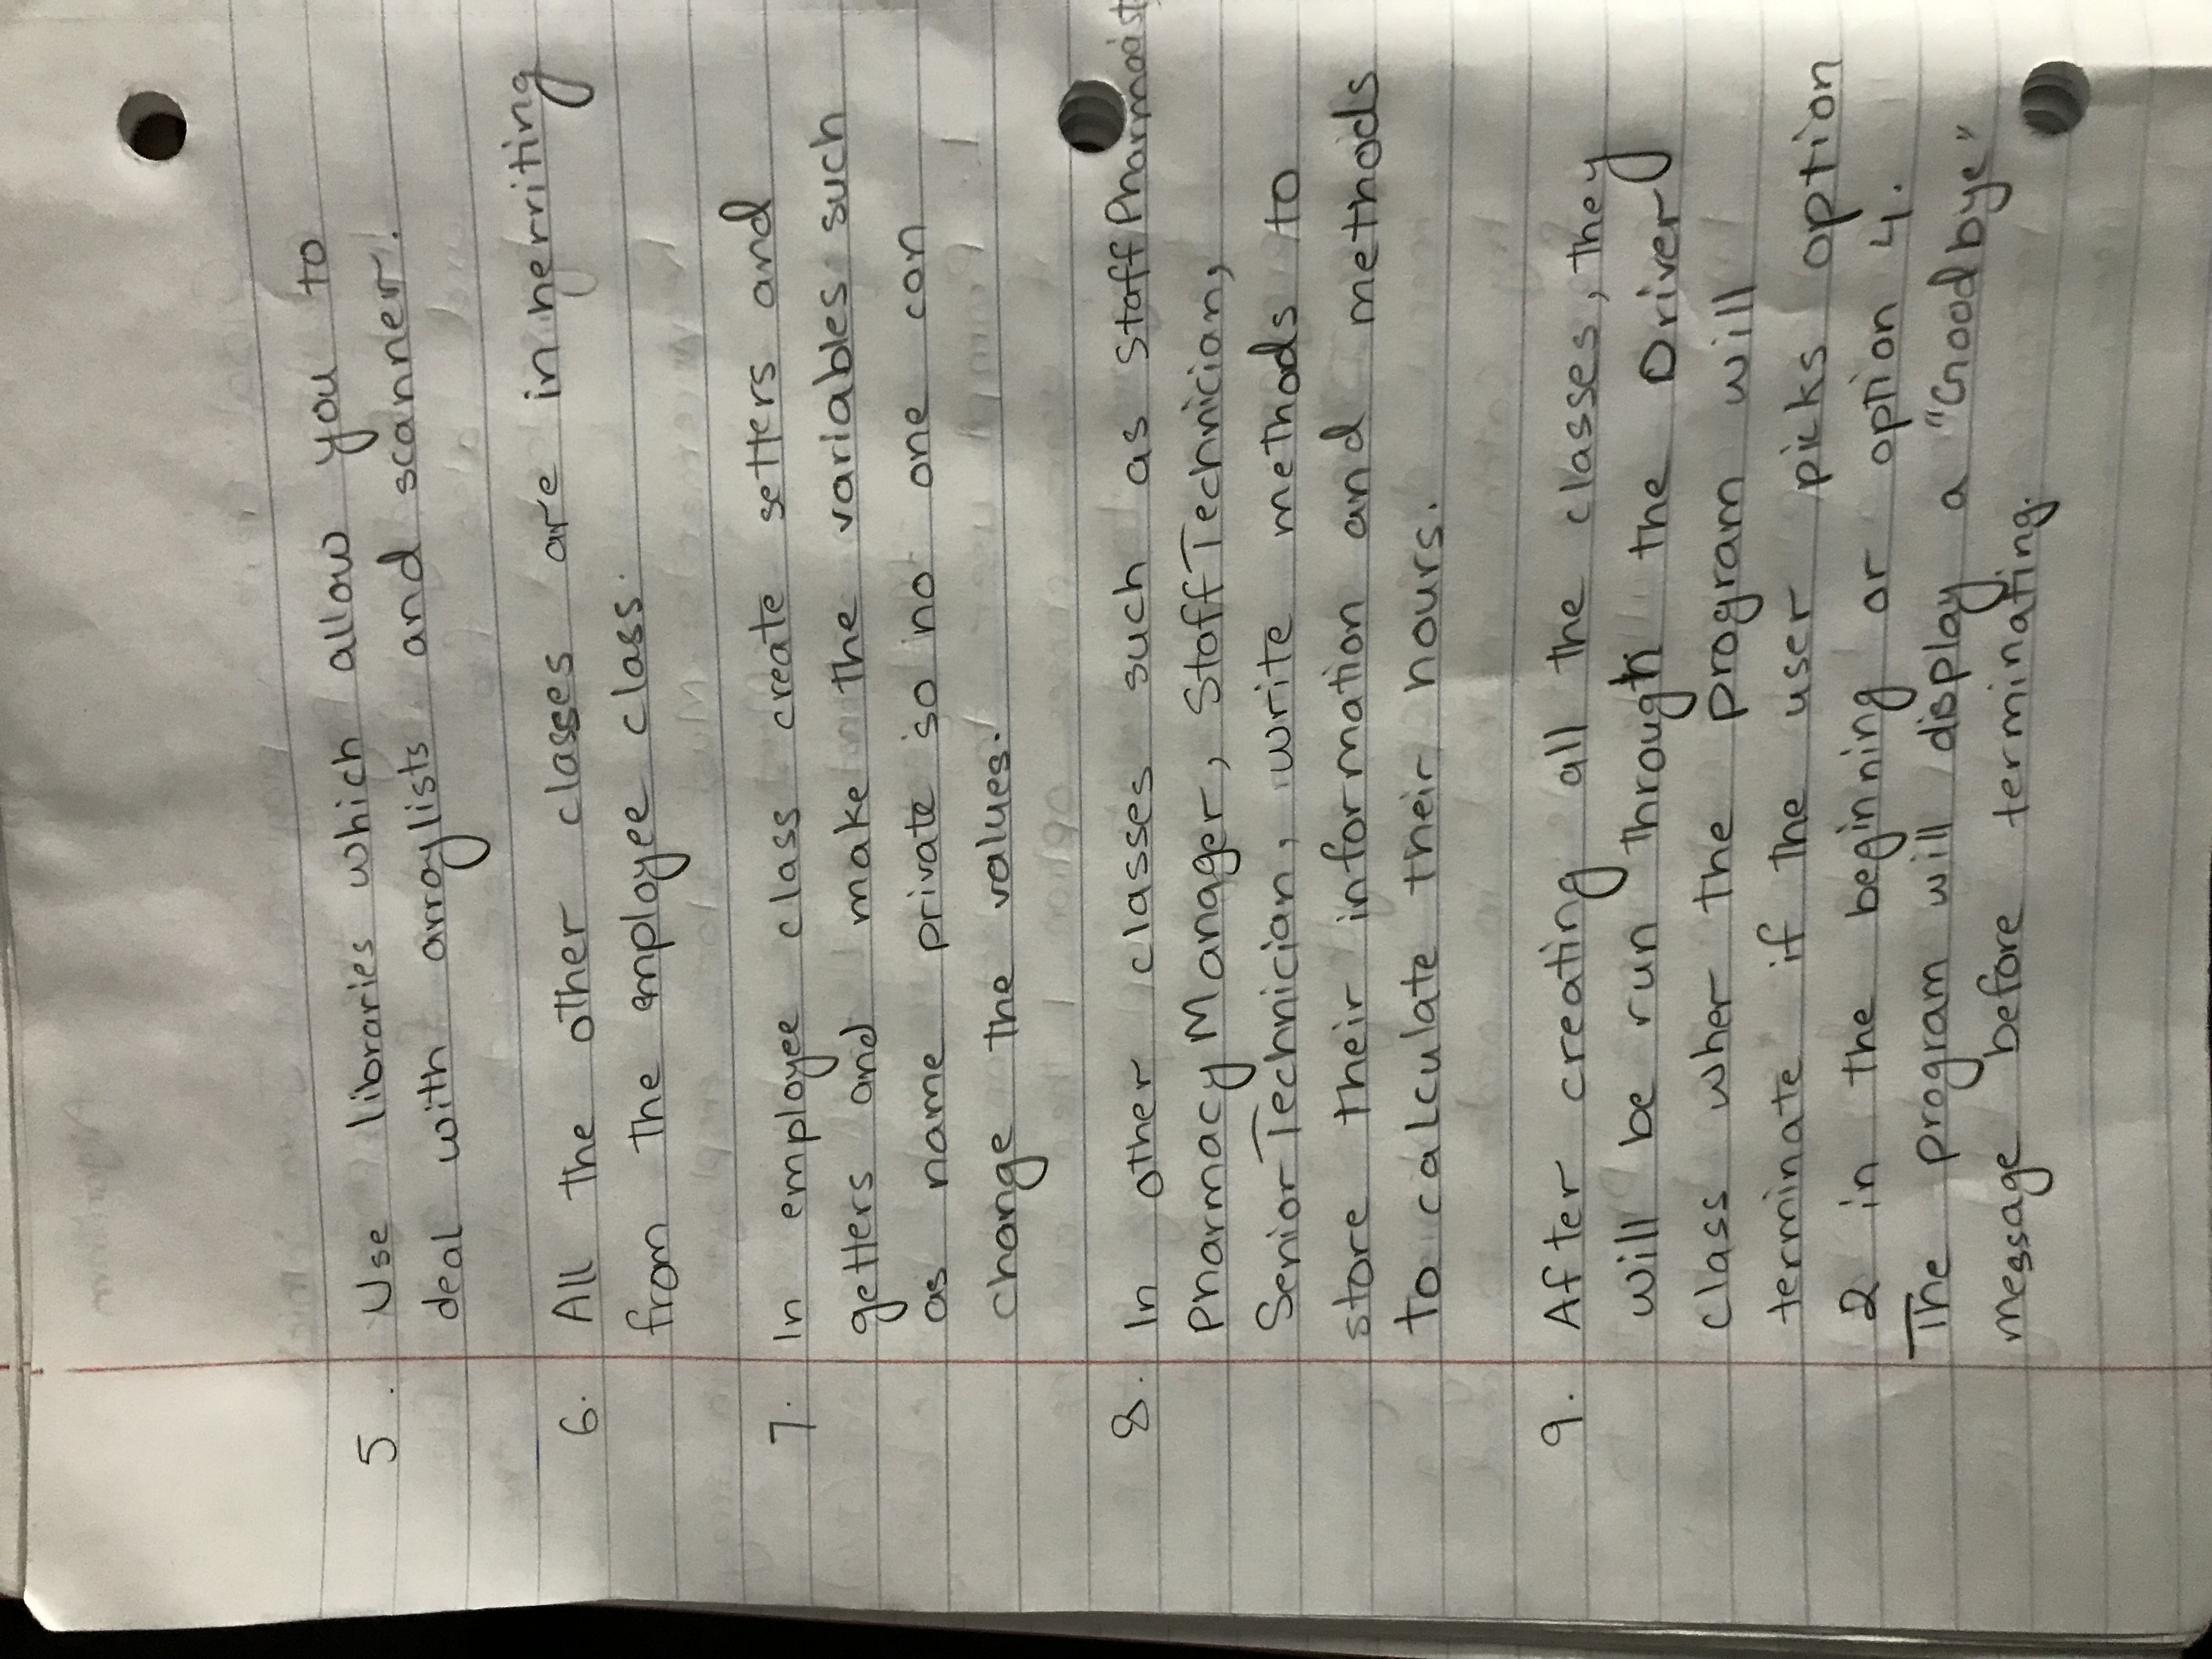 5. Use libraries which allow you to
deal with arraylists and scanner.
6. All the other classes are inherriting
from the employee class.
7. In employee class create setters and
getters and make the variables such
as name private so no one can
change the values.
8. In other classes such as Staff Pharmacist,
Pharmacy Manager, Staff Technician,
Senior Technician, write methods to
store their information and methods
to calculate their hours.
9. After creating all the classes, they
will be run through the Driver
class wher the program will
terminate if the user picks option
2 in the beginning or option 4.
The program will display a "Goodbye"
message before terminating.